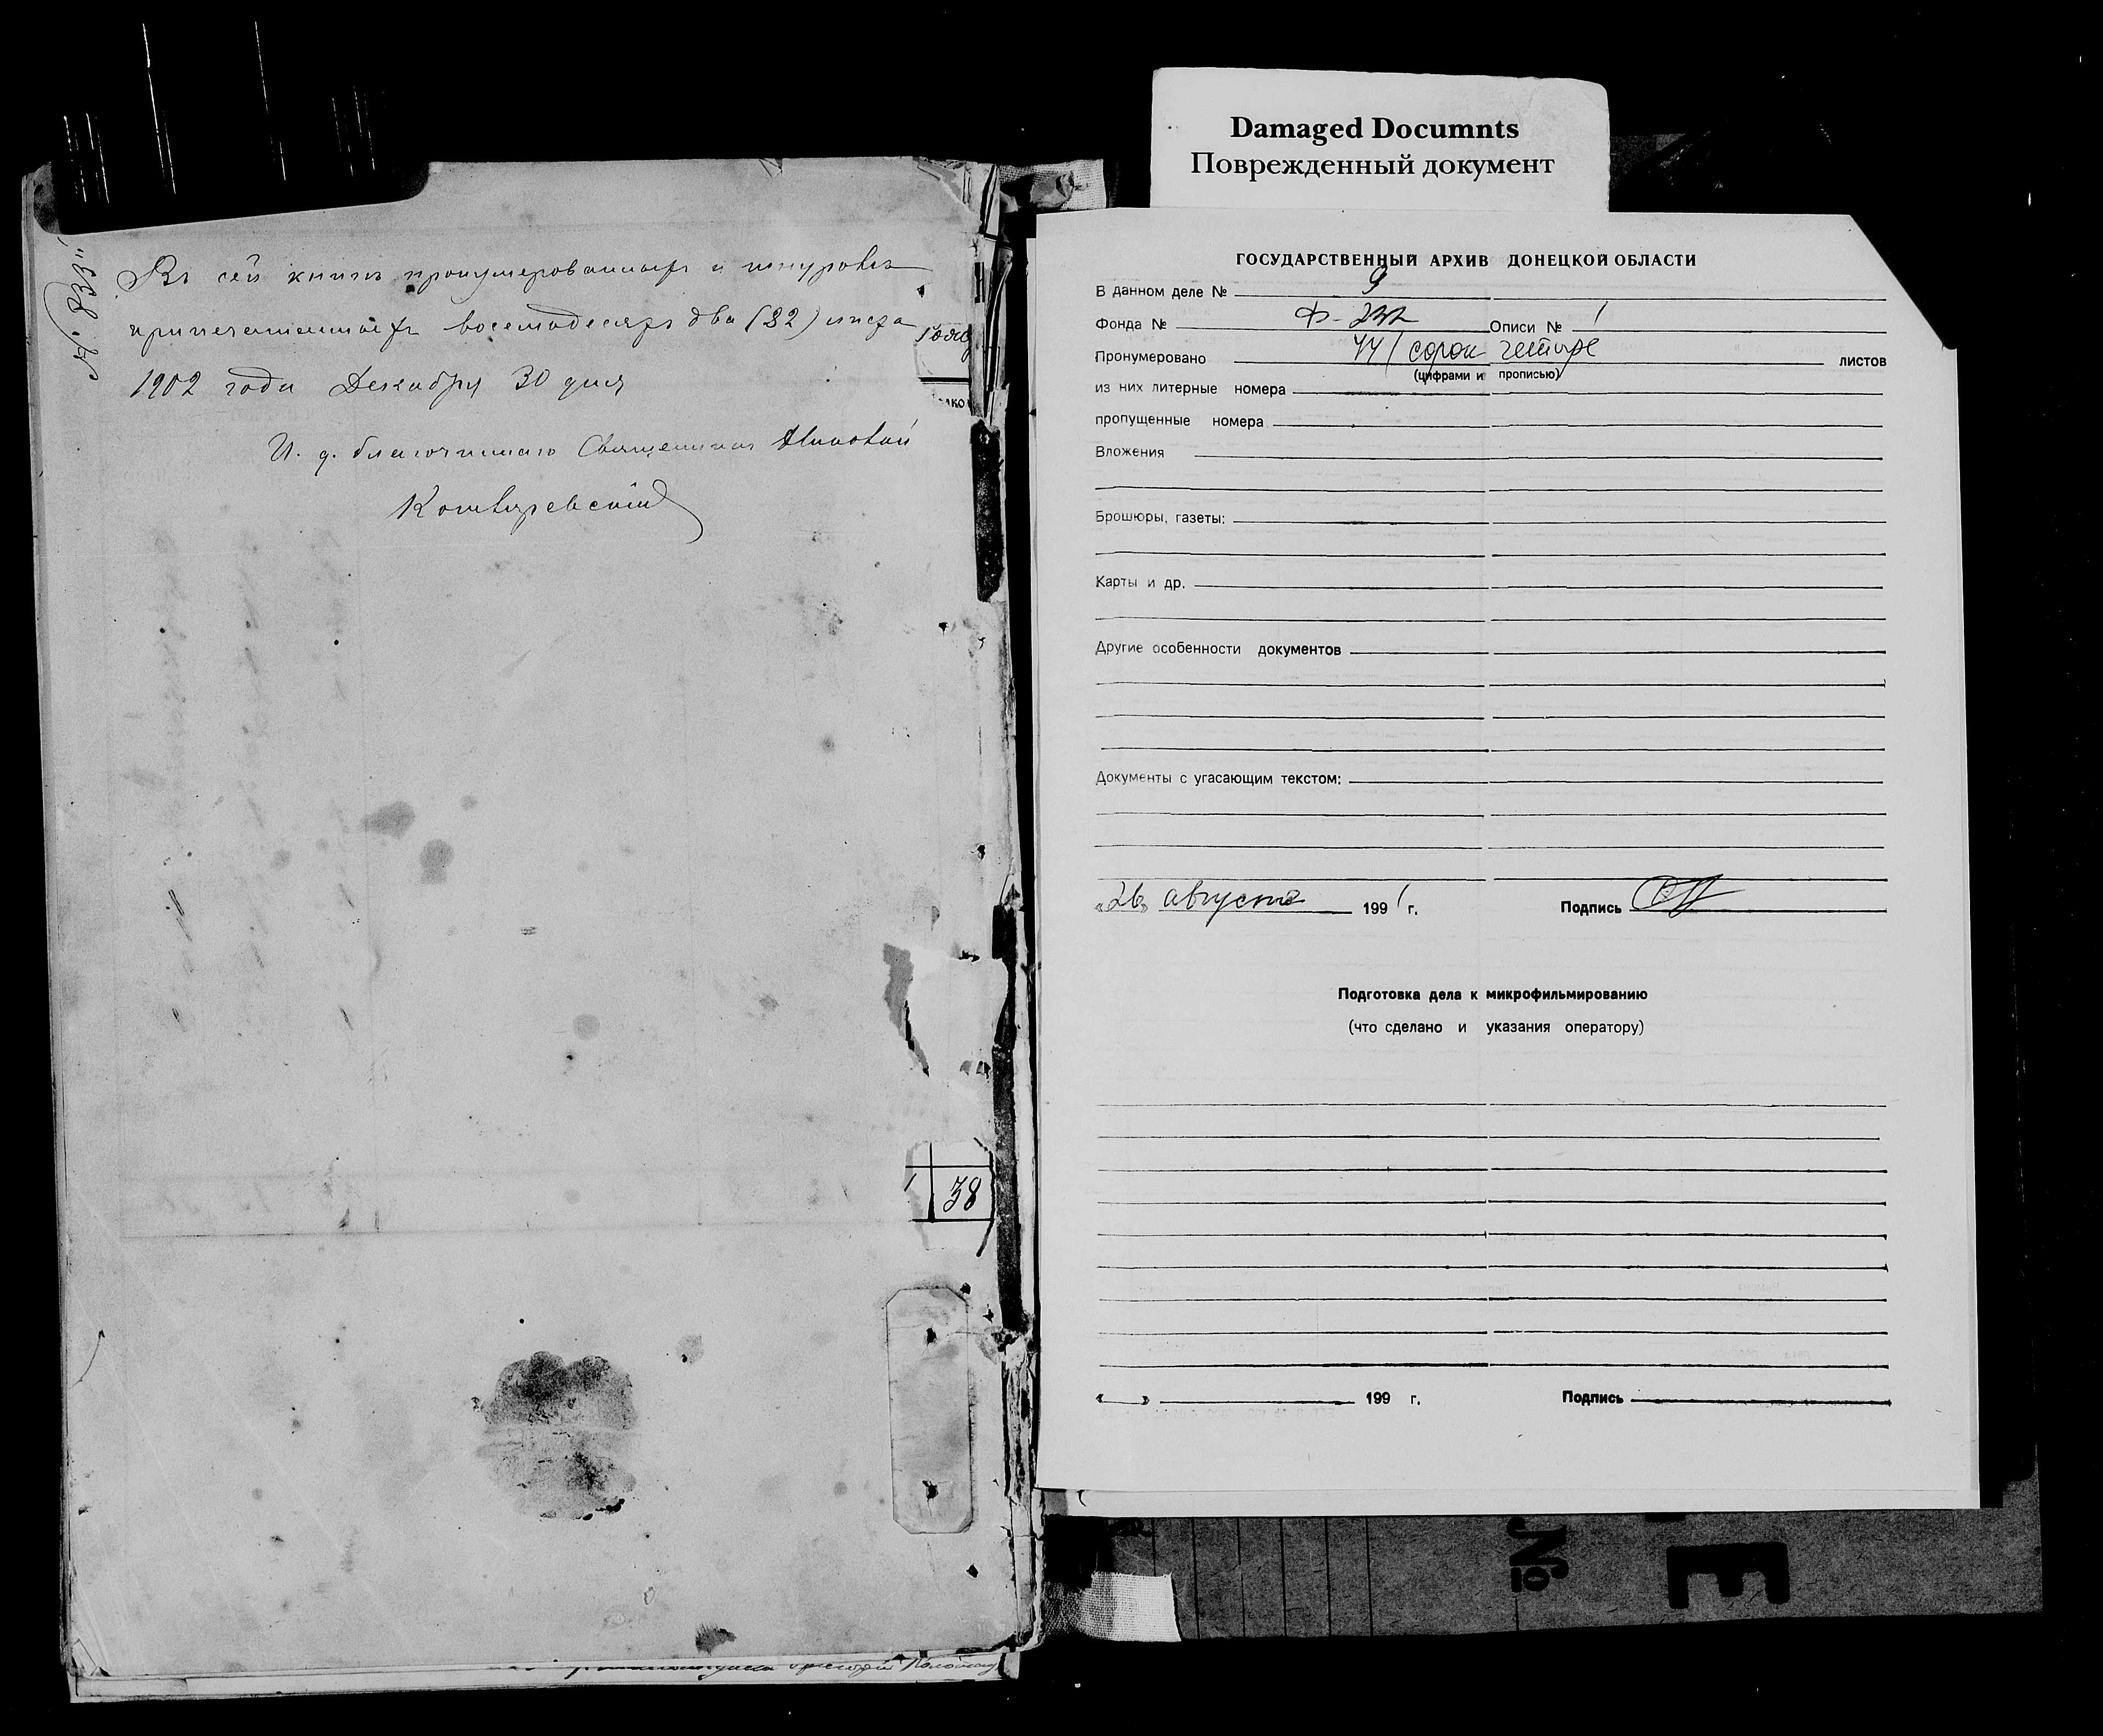 Въ сей книгѣ пронумерованныхъ и шнуровъ
припечатанныхъ восемьдесятъ два (82) листа
1902 года Декабря 30 дня
И. д. благочиннаго Священникъ
Котляревскій
38
Damaged Documnts
Поврежденный документ
ГОСУДАРСТВЕННЫЙ АРХИВ ДОНЕЦКОЙ ОБЛАСТИ
В данном деле № 9
Фонда № Ф-232 Описи № 1
Пронумеровано 44 / сорок четыре листов
(цифрами и прописью)
из них литерные номера
пропущенные номера
Вложения
Брошюры, газеты:
Карты и др.
Другие особенности документов
Документы с угасающим текстом:
«26» августа 1991 г. Подпись
Подготовка дела к микрофильмированию
(что сделано и указания оператору)
« » 199 г. Подпись
№
Е